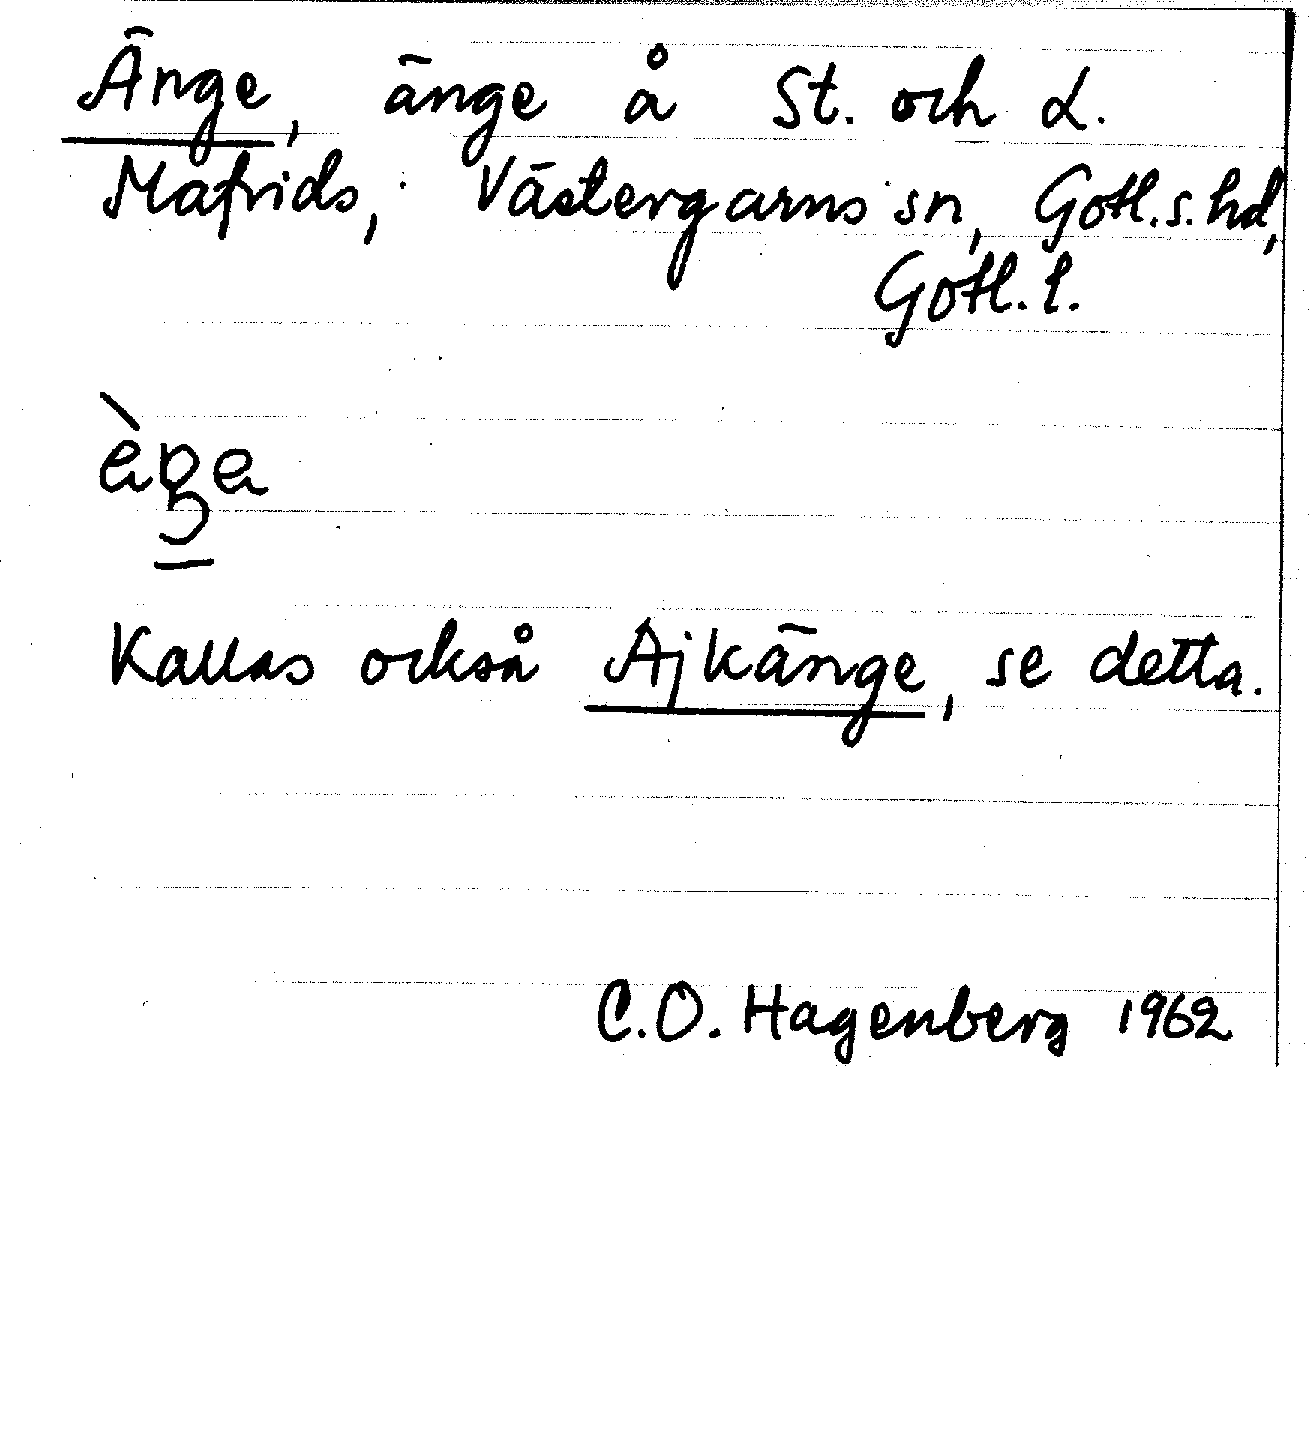 Änge, änge å St. och L.
Mafrids, Västergarns sn, Gotl. s. hd,
Gotl. l.
Kallas också Ajkänge, se detta.
C.O. Hagenberg 1962